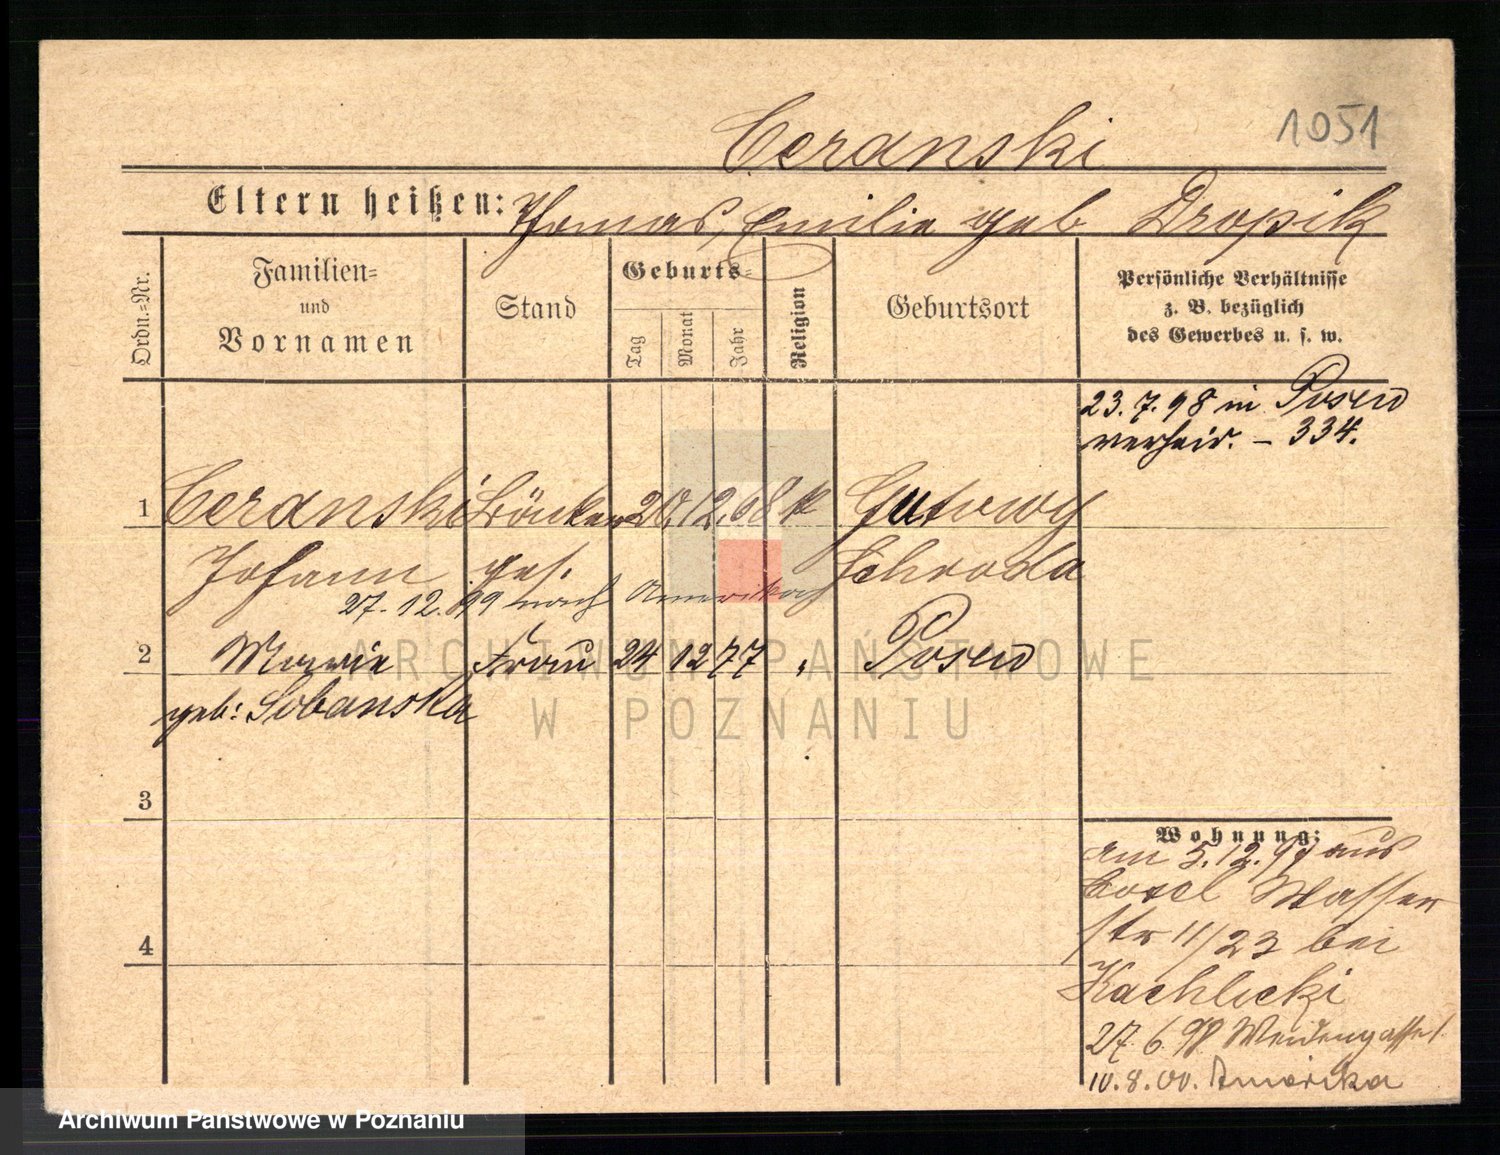 Ceranski 1051
Eltern heißen: Thomas, Emilie geb Dropik
Ordn.=Nr.
Familien=
und
Vornamen
Stand
Geburts=
Tag
Monat
Jahr
Religion
Geburtsort
Persönliche Verhältnisse
z. B. bezüglich
des Gewerbes u. s. w.
23.7.98 in Posen
verheir. – 334.
1 Ceranski Böttcher 20.12.68 k
Johann Schroda
27.12.99 nach Amerika
2 Frau 24 12 77 Posen
geb: Sobanska
3
4
Wohnung:
am 5.12.97 aus
Wasser
str 11/23 bei
Kachlicki
27.6.98 Weidengasse 1.
10.8.00. Amerika
ARCHIWUM PAŃSTWOWE
W POZNANIU
Archiwum Państwowe w Poznaniu